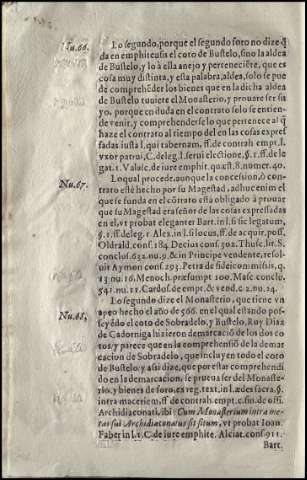 Nu.66. Lo segundo, porque el segundo foro no dize q̃
da en emphiteusis el coto de Bustelo, sino la aldea
de Bustelo, y lo à ella anejo y perteneciẽte, que es
cosa muy distinta, y essa palabra, aldea, solo se pue
de comprehẽder los bienes que en la dicha aldea
de Bustelo tuuiere el Monasterio, y prouare ser su
yo, porque en duda en el contrato solo se entien-
de venir, y comprehenderse lo que pertenece al q̃
haze el contrato al tiempo del en las cosas expres
sadas iusta l. qui tabernam, ff. de contrah. empt. l.
vxor patrui, C. de leg. l. serui electione, §. 1. ff. de le
gat. 1. Valasc. de iure emphit. quæst. 8. numer. 40.
Nu.67. Lo qual procede, aunque la concession, ò con
trato estè hecho por su Magestad, adhuc en im el
que se funda en el cõtrato està obligado à prouar
que su Magestad era señor de las cosas expressadas
en el, vt probat eleganter Bart. in l. si sic legatum,
§. 1. ff. de leg. 1. Alex. in l. si locus, ff. de acquir. poss.
Oldrald. cons. 184. Decius cons. 302. Thusc. lit. S.
conclus. 632. nu. 9. & in Principe vendente, resol-
uit Aymon cons. 293. Petra de fideicommissis, q.
13. nu. 16. Menoch. præsumpt. 100. Masc. conclus.
541. nu. 21. Cardos. de empt. & vend. c. 2. nu. 24.
Nu.68. Lo segundo dize el Monasterio, que tiene vn
apeo hecho el año de 566. en el qual estando pos-
seyẽdo el coto de Sobradelo, y Bustelo, Ruy Diaz
de Cadorniga hizieron demarcacio de los dos co
tos, y parece que en la comprehensió de la demar
cacion de Sobradelo, que incluyen todo el coto
de Bustelo; y assi dize, que por estar comprehendi
do en la demarcacion, se prueua ser del Monaste-
rio, y bienes de foro, ex eo, text. in l. ædes sacra. §.
intra maceriem, ff. de contrah. empt. c. fin. de offi.
Archidiaconati, ibi: Cum Monasterium intra me
tas sui Archidiaconatus sit situm, vt probat Ioan.
Faber in l. 1. C. de iure emphite. Alciat. cons. 911.
Bart.